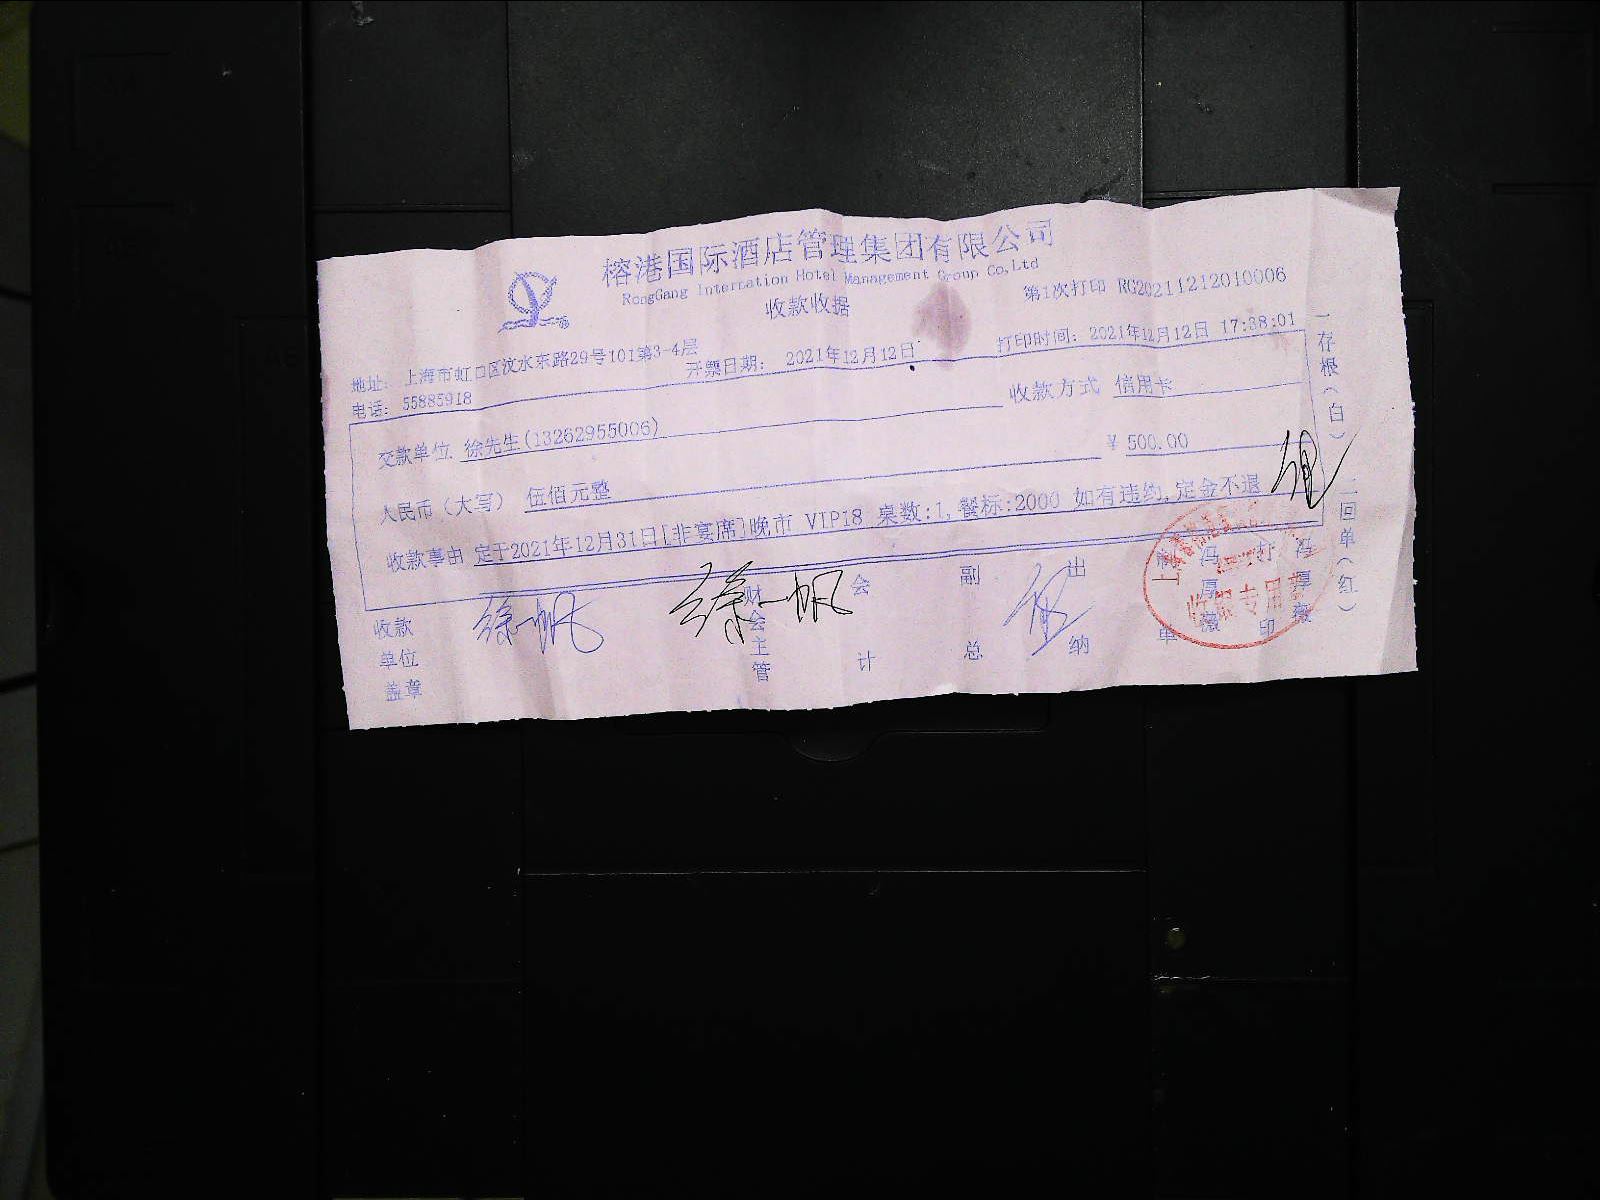 榕港国际酒店管理集团有限公司
RongGang Internation Hotel Management Group Co,Ltd
收款收据
第1次打印 RG20211212010006
地址: 上海市虹口区汶水东路29号101第3-4层
开票日期: 2021年12月12日
打印时间: 2021年12月12日 17:38:01
电话: 55885918
收款方式 信用卡
交款单位 徐先生(13262955006)
人民币(大写) 伍佰元整
¥ 500.00
收款事由 定于2021年12月31日[非宴席]晚市 VIP18 桌数:1,餐标:2000 如有违约,定金不退
收款单位盖章
徐一帆
徐一帆
财会主管
会计
副总
出纳
打印
收据专用章
一存根(白)
二回单(红)